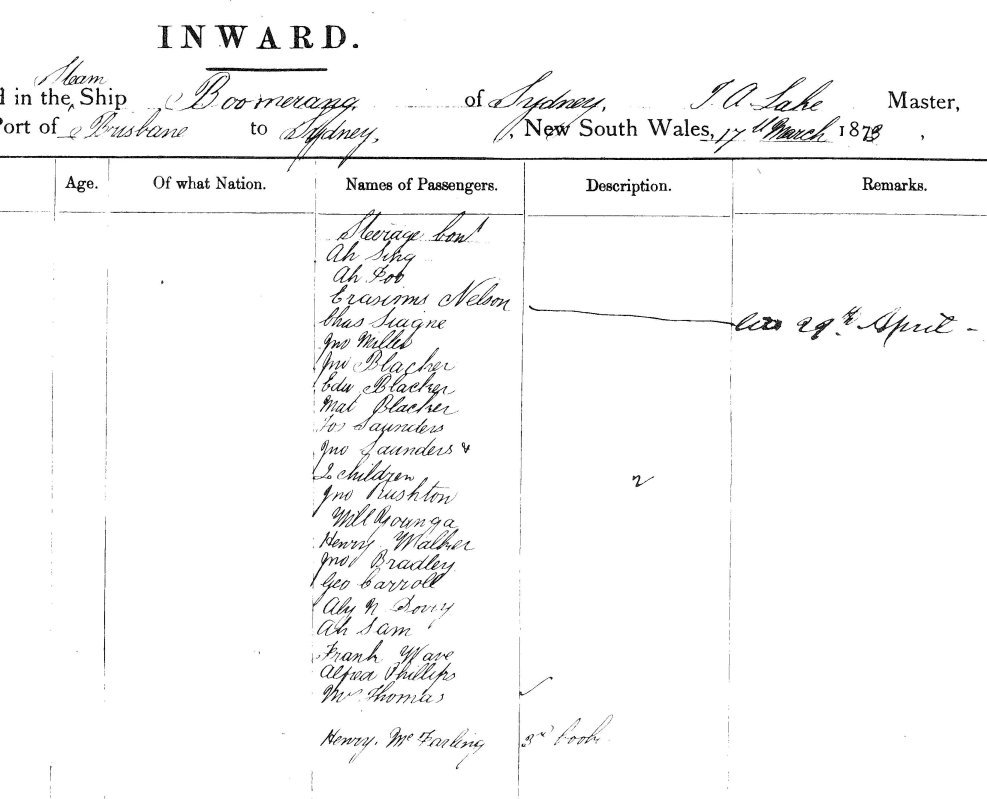 INWARD.
Steam
d in the Ship Boomerang of Sydney, T. A. Lake Master,
Port of Brisbane to Sydney, New South Wales, 17th March 1873,
Age. Of what Nation. Names of Passengers. Description. Remarks.
Steerage Cont
Ah Sing
Ah Foo
Erasioms Nelson
29th April -
Chas
Jno Miller
Jno Blacker
Edw Blacker
Mat Blacker
Jos Saunders
Jno Saunders &
2 children 2
Jno Rushton
Will Younga
Henry Walker
Jno Bradley
Geo Carroll
Aly N
Ah Sam
Frank Wave
Alfred Phillips
Thomas
Henry. McFarling 3rd Cook